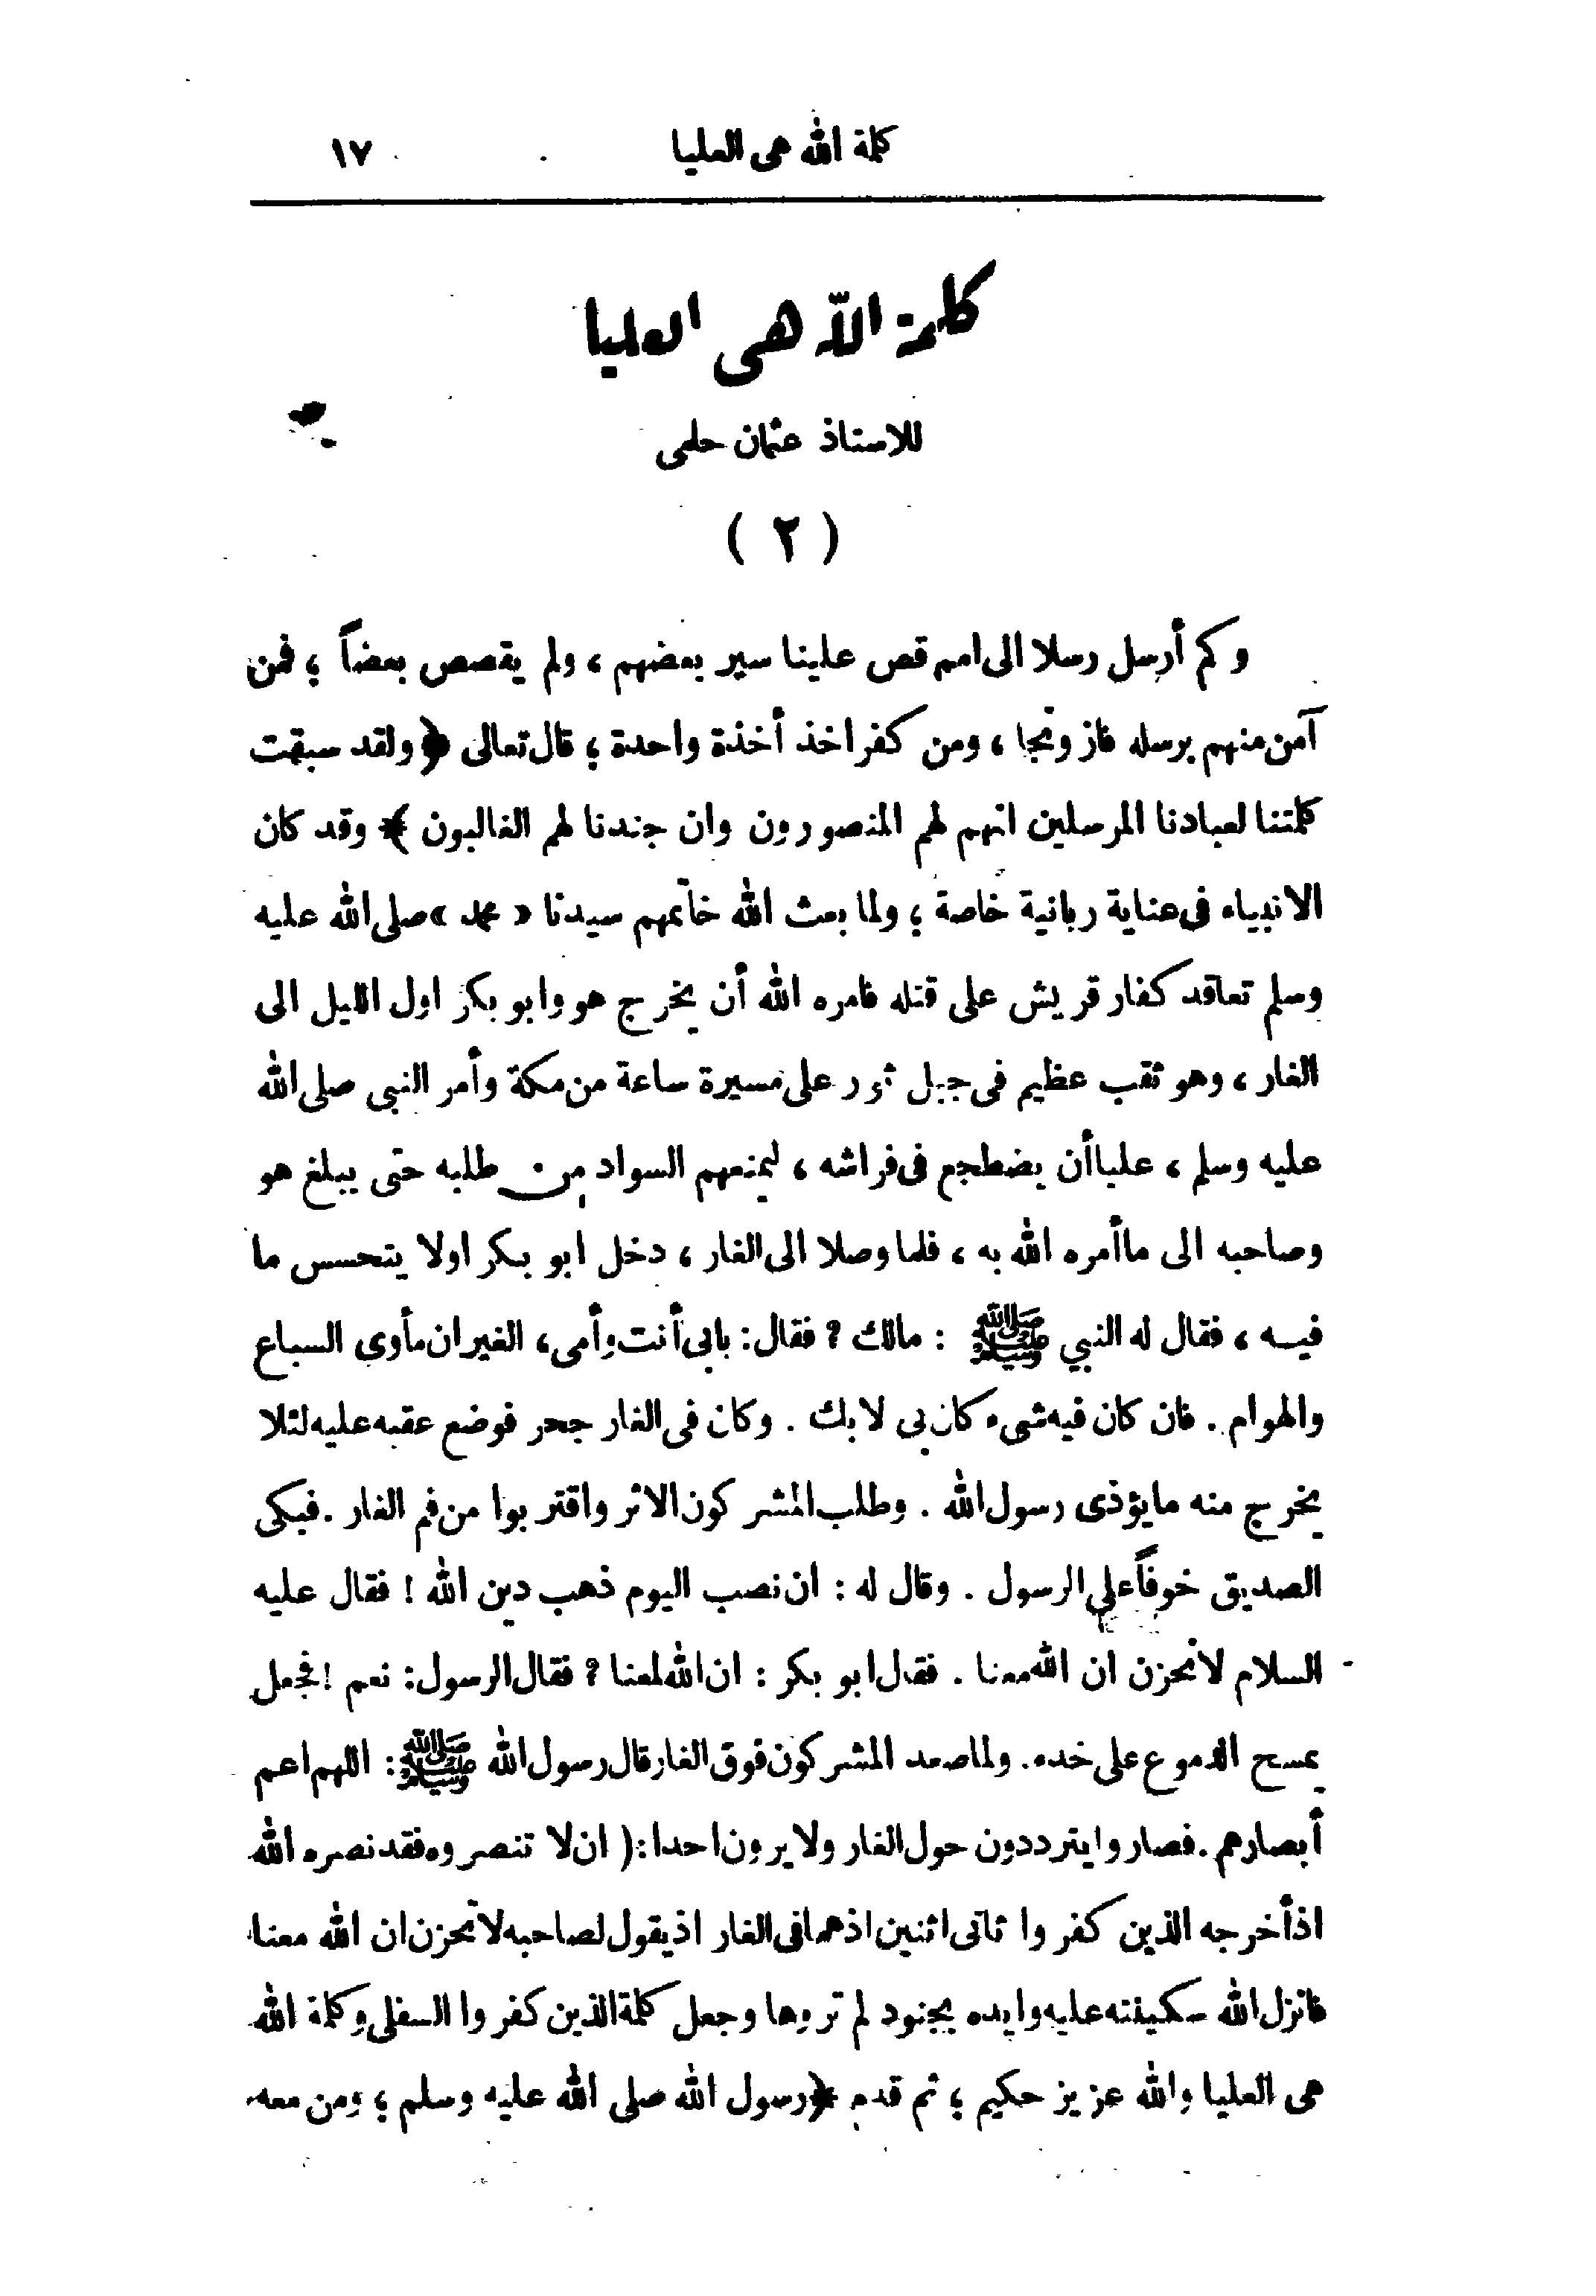 كلمة الله هى العليا ١٧
كلمة الله هى العليا
للاستاذ عثمان حلمى
( ٢ )
وكم أرسل رسلا الى امم قص علينا سير بعضهم ، ولم يقصص بعضاً ؛ فمن
آمن منهم برسله فاز ونجا ، ومن كفر اخذ أخذة واحدة ؛ قال تعالى ﴿ ولقد سبقت
كلمتنا لعبادنا المرسلين انهم لهم المنصورون وان جندنا لهم الغالبون ﴾ وقد كان
الانبياء فى عناية ربانية خاصة ؛ ولما بعث الله خاتمهم سيدنا « محمد » صلى الله عليه
وسلم تعاقد كفار قريش على قتله فامره الله أن يخرج هو وابو بكر اول الليل الى
الغار ، وهو ثقب عظيم فى جبل ثور على مسيرة ساعة من مكة وأمر النبى صلى الله
عليه وسلم ، عليا أن يضطجع فى فراشه ، ليمنعهم السواد من طلبه حتى يبلغ هو
وصاحبه الى ما أمره الله به ، فلما وصلا الى الغار ، دخل ابو بكر اولا يتحسس ما
فيه ، فقال له النبي ﷺ : مالك ? فقال : بابى أنت وأمى ، الغيران مأوى السباع
والهوام . فان كان فيه شىء كان بى لا بك . وكان فى الغار جحر فوضع عقبه عليه لئلا
يخرج منه ما يؤذى رسول الله . وطلب المشركون الاثر واقتربوا من فم الغار . فبكى
الصديق خوفاً على الرسول . وقال له : ان نصب اليوم ذهب دين الله ! فقال عليه
السلام لا تحزن ان الله معنا . فقال ابو بكر : ان الله لمعنا ? فقال الرسول : نعم ! فجعل
يمسح الدموع على خده . ولما صعد المشركون فوق الغار قال رسول الله ﷺ : اللهم اعم
أبصارهم . فصاروا يترددون حول الغار ولا يرون احدا : ( ان لا تنصروه فقد نصره الله
اذ أخرجه الذين كفروا ثانى اثنين اذ هما فى الغار اذ يقول لصاحبه لا تحزن ان الله معنا
فانزل الله سكينته عليه وايده بجنود لم تروها وجعل كلمة الذين كفروا السفلى وكلمة الله
هى العليا والله عزيز حكيم ؛ ثم قدم ﴿ رسول الله صلى الله عليه وسلم ؛ ومن معه